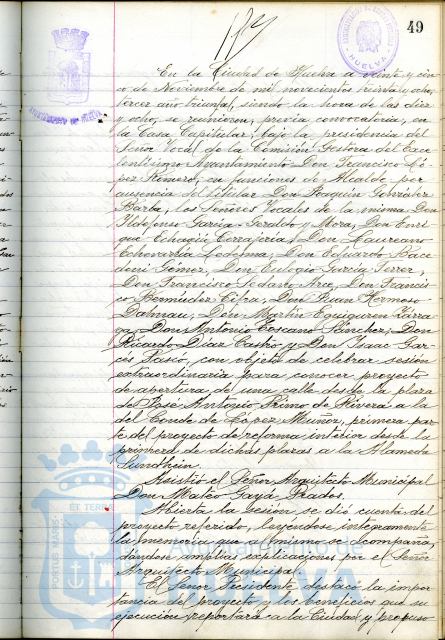 49
AYUNTAMIENTO DE HUELVA
HUELVA
En la Ciudad de Huelva a veinte y cin-
co de Noviembre de mil novecientos treinta y ocho,
tercer año triunfal, siendo la hora de las diez
y ocho, se reunieron, previa convocatoria, en
la Casa Capitular, bajo la presidencia del
Señor Vocal de la Comisión Gestora del Exce-
lentísimo Ayuntamiento Don Francisco Ló-
pez Romero, en funciones de Alcalde por
ausencia del titular Don Joaquín González
Barba, los Señores Vocales de la misma Don
Ildefonso García-Geraldo y Mora, Don Enri
que Echagüe Torrajería, Don Laureano
Echevarría Ledesma, Don Eduardo Bace
Gómez, Don Eulogio García
Don Francisco Arce, Don Francis
co Bermúdez Cifra, Don Juan Hermoso
Dalmau, Don Martín Eguiguren Yárra
ga, Don Antonio Toscano Sánchez, Don
Ricardo Díaz Castro y Don Isaac Gar-
cés Pascó, con objeto de celebrar sesión
extraordinaria para conocer proyecto
de apertura de una calle desde la plaza
de José Antonio Primo de Rivera a la
del Conde de López Muñoz, primera par
te del proyecto de reforma interior desde la
primera de dichas plazas a la Alameda
Sundheim.
Asistió el Señor Arquitecto Municipal
Don Mateo Gayá Prados.
Abierta la sesión se dió cuenta del
proyecto referido, leyéndose íntegramente
la memoria que al mismo se acompaña,
dándose amplias explicaciones por el Señor
Arquitecto Municipal.
El Señor Presidente destacó la impor
tancia del proyecto y los beneficios que su
ejecución reportará a la Ciudad y propuso
PORTUS MARIS ET TERRÆ